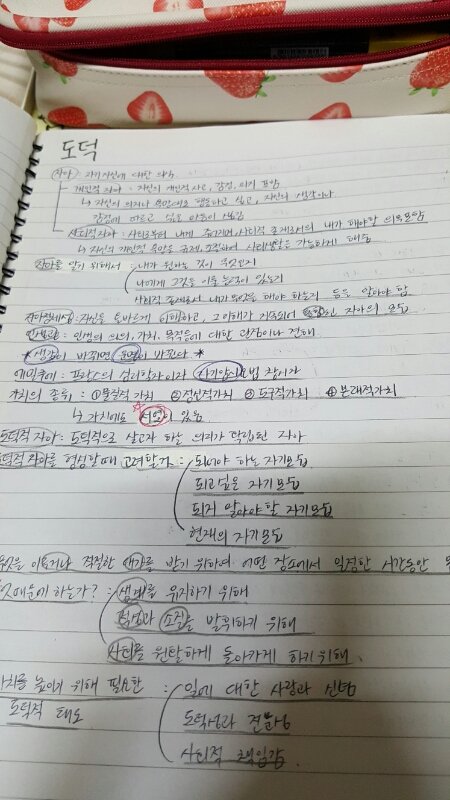 도덕
(자아) : 자기자신에 대한 의식
개인적 자아 : 자신의 개인적 사고, 감정, 의지 포함
↳ 자신의 의거나 욕망대로 행동하고 싶고, 자신의 생각이나
감정에 따르고 싶은 마음이 생김
사회적자아 : 사회로부터 내게 주어지며 사회적 존재로서의 내가 해야할 의무포함
↳ 자신의 개인적 욕망을 규제, 조절하여 사회생활을 가능하게 해줌
자아를 알기 위해서 : 내가 원하는 것이 무엇인지
나에게 그것을 이룰 능력이 있는지
사회적 존재로서 내가 무엇을 해야 하는지 등을 알아야 함
자아정체성 : 자신을 올바르게 이해하고, 그 이해가 지속되어 자아의 모습
인생관 : 인생의 의의, 가치, 목적등에 대한 관점이나 견해
*생각이 바뀌면 운명이 바뀐다 *
에밀쿠에 : 프랑스의 심리학자이자 자기암시요법 창시자
가치의 종류 : ①물질적가치 ②정신적가치 ③도구적가치 ④본래적가치
↳ 가치에도 서열이 있음
도덕적 자아 : 도덕적으로 살고자 하는 의지가 확립된 자아
도덕적 자아를 형성할때 고려할것 : 되어야 하는 자기모습
되고싶은 자기모습
되지 않아야 할 자기모습
현재의 자기모습
이루거나 적절한 대가를 받기 위하여 어떤 장소에서 일정한 시간동안
때문에 하는가? : 생계를 유지하기 위해
적성과 소질을 발휘하기 위해
사회를 원활하게 돌아가게 하기 위해.
가치를 높이기 위해 필요한 : 일에 대한 사랑과 신념
도덕적 태도
도덕성과 전문성
사회적 책임감.